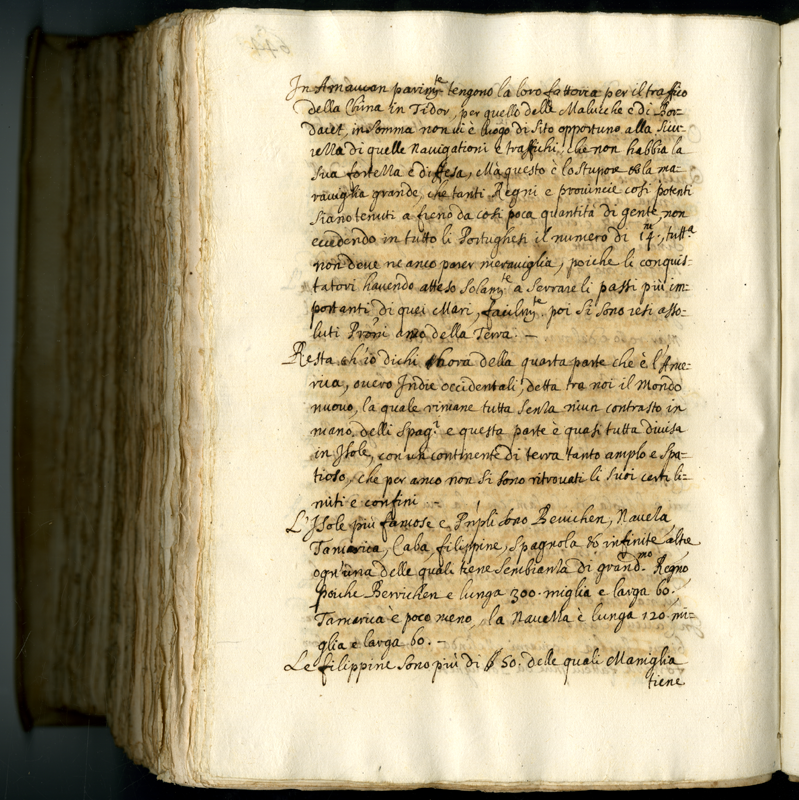 In Amaucan parim.te tengono la loro fattoria per il traffico
della China in Tidor, per quello delle Maluche e di Bor-
dacet, in somma non vi è luogo di sito opportuno alla Sicu-
rezza di quelle Navigationi e traffichi, che non habbia la
sua fortezza e diffesa, Ma questo è lo stupore & la ma-
raviglia grande, che tanti Regni e provincie cosi potenti
siano tenuti a freno da cosi poca quantità di gente, non
eccedendo in tutto li Portughesi il numero di 14.m, tutt.a
non deve ne anco parer meraviglia, poiche li conquis-
tatori havendo atteso solam.te a serrare li passi più im-
portanti di quei Mari, facilm.te poi si sono resi asso-
luti Proni anco della Terra. —
Resta ch'io dichi hora della quarta parte che è l'Ame-
rica, overo Indie occidentali detta tra noi il Mondo
nuovo, la quale rimane tutta senza niun contrasto in
mano delli Spag.i e questa parte è quasi tutta divisa
in Isole, con un continente di terra tanto amplo e spa-
tioso, che per anco non si sono ritrovati li suoi certi li-
miti e confini —
L'Isole più famose e Pnpli sono Bevichen, Navela
Tamarica, Caba, filippine, Spagnola & infinite altre
ogn'una delle quali tiene sembianza di grand.mo Regno
poiche Berrichen e lunga 300. miglia e larga 60.
Tamarica è poco meno, la Navezza è lunga 120. mi-
glia e larga 60. —
Le filippine sono più di 50. delle quali Maniglia
tiene